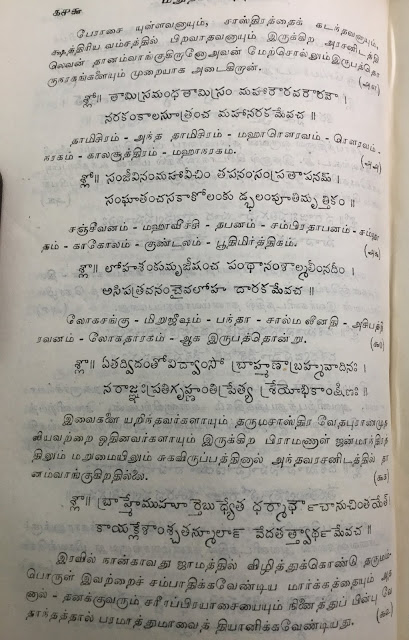 ௧௪௬
பேராசை யுள்ளவனாயும், சாஸ்திரத்தைக் கடந்தவனாயும்,
க்ஷத்திரிய வம்சத்தில் பிறவாதவனாயும் இருக்கிற அரசனிடத்தி
லெவன் தானம்வாங்குகிறானோஅவன் மேற்சொல்லும்இருபத்தொ
ருநரகங்களையும் முறையாக அடைகிறான்.
శ్లో॥ తామిస్రమంధతామిస్రం మహారౌరవరౌరవౌ ।
నరకంకాలసూత్రంచ మహానరకమేవచ ॥
தாமிசிரம் - அந்த தாமிசிரம் - மஹாரௌரவம் - ரௌரவம் -
நரகம் - காலசூத்திரம் - மஹாநரகம்.
శ్లో॥ సంజీవనంమహావీచిం తపనంసంప్రతాపనమ్ ।
సంఘాతంచసకాకోలంకు డ్మలంపూతిమృత్తికం ॥
சஞ்சீவனம் - மஹாவீசி - தபனம் - சம்பிரதாபனம் - சம்
தம் - காகோலம் - குண்டலம் - பூதிமிர்த்திகம்.
శ్లో॥ లోహశంకుమృజీషంచ పంథానంశాల్మలీంనదీం ।
అసిపత్రవనంచైవలోహ దారకమేవచ ॥
லோகசங்கு - மிறுஜீஷம் - பந்தா - சால்மலிநதி - அசிபத்தி
ரவனம் - லோகதாரகம் - ஆக இருபத்தொன்று.
శ్లో॥ ఏతద్విదంతోవిద్వాంసో బ్రాహ్మణాబ్రహ్మవాదినః ।
నరాజ్ఞఃప్రతిగృహ్ణంతి ప్రేత్య శ్రేయోభికాంక్షిణః ॥
இவைகளை யறிந்தவர்களாயும் தருமசாஸ்திர வேதபுராணமு
லியவற்றை ஓதினவர்களாயும் இருக்கிற பிராமணாள் ஜன்மாந்திரத்
திலும் மறுமையிலும் சுகவிருப்பத்தினால் அந்தவரசனிடத்தில் தா
னம்வாங்குகிறதில்லை.
శ్లో॥ బ్రాహ్మేముహూర్తెబుధ్యేత ధర్మార్థౌచానుచింతయేత్
కాయక్లేశాంశ్చతన్మూలాన్ వేదతత్త్వార్థమేవచ ॥
இரவில் நான்காவது ஜாமத்தில் விழித்துக்கொண்டு தரும
பொருள் இவற்றைச் சம்பாதிக்கவேண்டிய மார்க்கத்தையும்
னால் - தனக்குவரும் சரீரப்பிரயாசையையும் நினைத்துப் பின்பு வே
தாந்தத்தால் பரமாத்துமாவைத் தியானிக்கவேண்டியது.